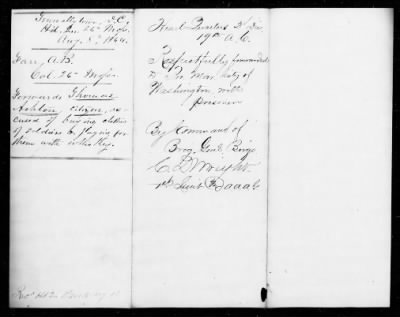 Tennallytown, D.C.
Hd. Qrs. 26" Mass.
Aug. 8" 1864.
Farr, A.B.
Col. 26" Mass.
Forwards Thomas
Ashton, citizen, ac-
cused of buying clothes
of soldiers & paying for
them with whiskey.
Head Quarters 2" Div
19th A.C.
Respectfully forwarded
to Pro. Mar. City of
Washington with
prisoner
By Command of
Brig. Genl. Birge
C D Wright
1st Lieut